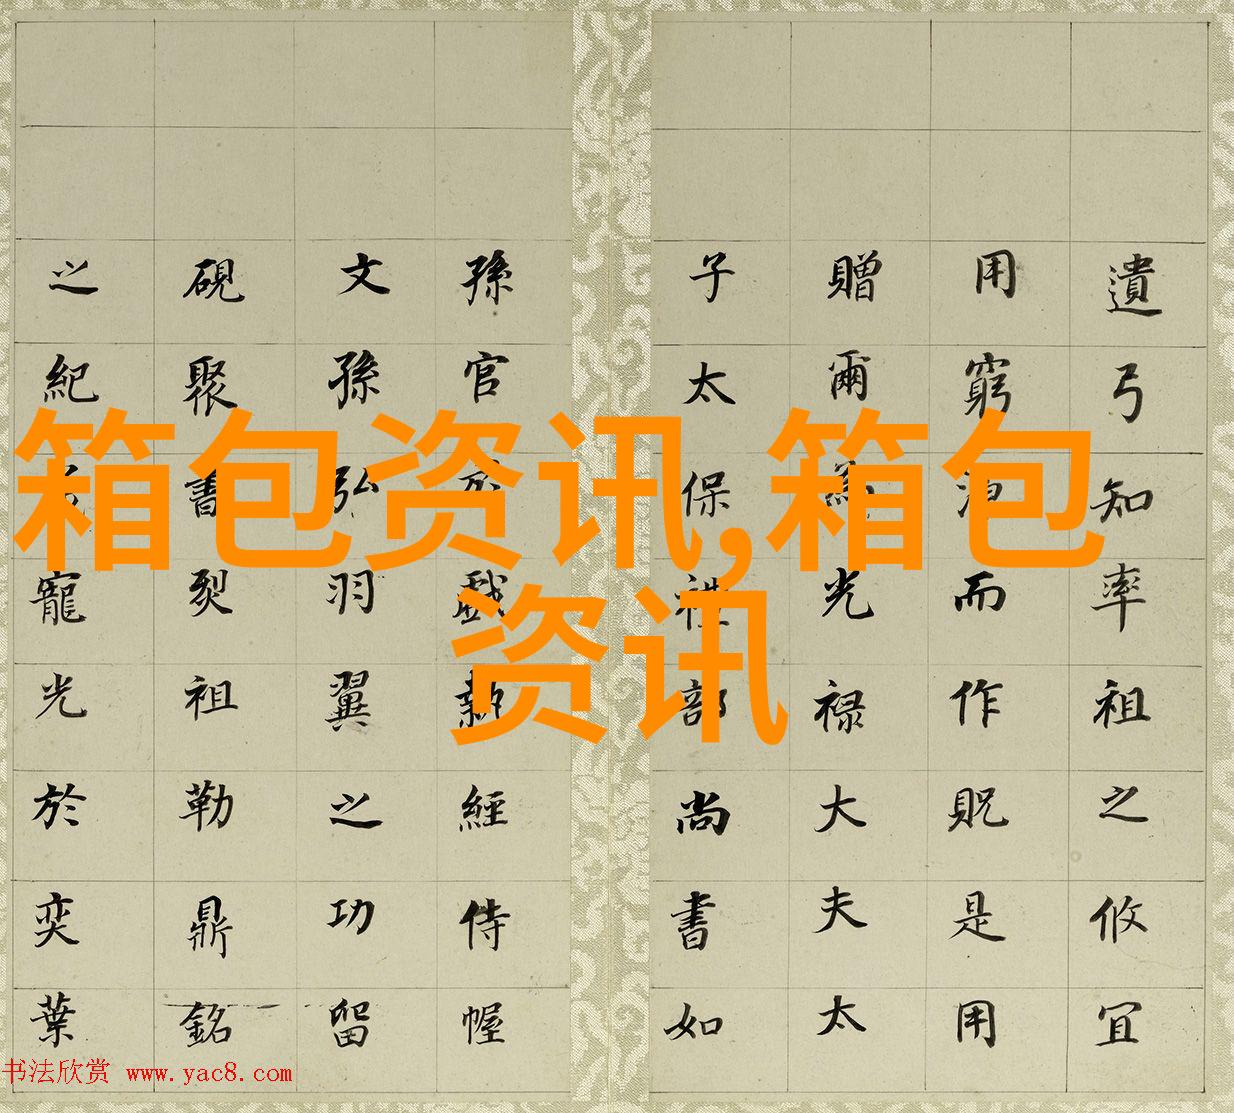 箱包资讯,箱包
资讯
遺弓知率祖之攸宜
用窮而作貺是用
贈爾為光禄大夫太
子太保部尚書如
孫官經侍幄
文孫弘羽翼之功留
硯聚書裂祖勒鼎銘
之紀寵光於奕葉
书法欣赏 www.yac8.com